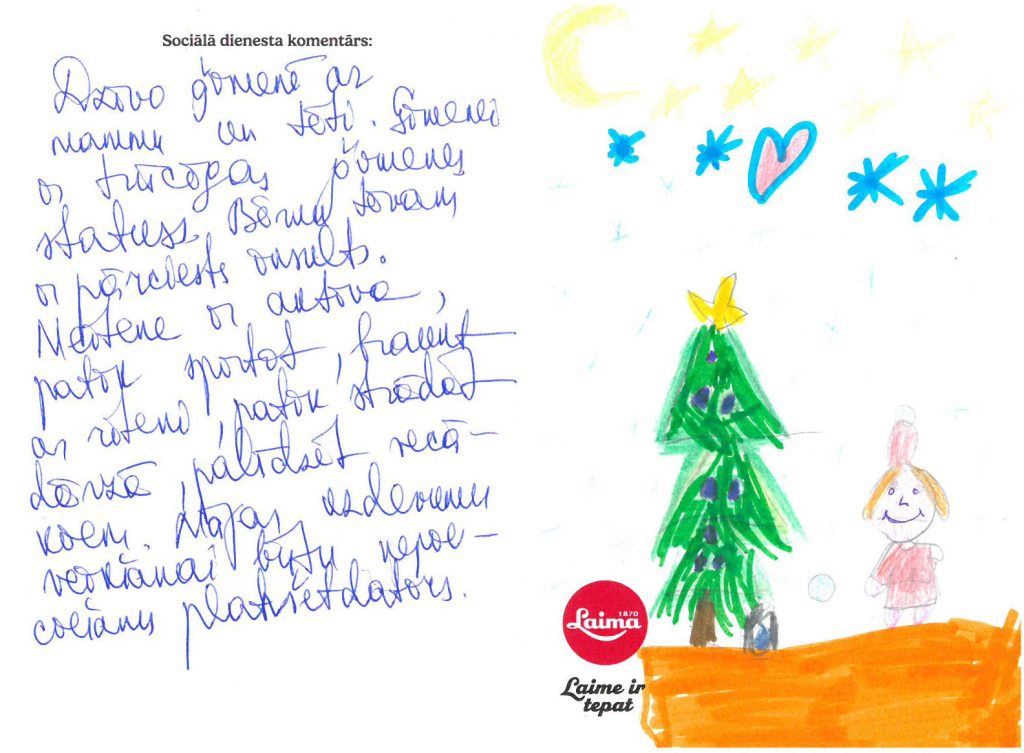 Sociālā dienesta komentārs:
Dzīvo ģimenē ar
mammu un tēti. Ģimenei
ir trūcīgas ģimenes
statuss. Bērnu tēvam
ir pārciests insults.
Meitene ir aktīva,
patīk sportot, braukt
ar riteni, patīk strādāt
dārzā, palīdzēt vecā-
kiem. Mājas uzdevumu
veikšanai būtu nepie-
ciešams planšetdators.
1870
Laima
Laime ir
tepat